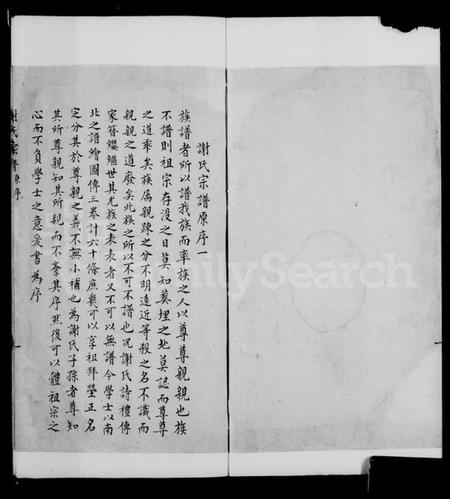 謝氏宗譜原序一
族譜者所以譜我族而率族之人以尊尊親親也族
不譜則祖宗存沒之日莫知塟埋之地莫認而尊尊
之道乖矣族属親踈之分不明遠近等殺之名不識而
親親之道廢矣此族之所以不可不譜也况謝氏詩禮傳
家簪纓繼世其尤族之表表者又不可以無譜今學士以南
北之譜繪圖傳三卷計六十條庶幾可以享祖拜塋正名
定分其於尊親之義不無小補也為謝氏子孫者尊知
其所尊親知其所親而不紊其序然後可以體祖宗之
心而不負學士之意爰書為序
謝氏宗譜原序
FamilySearch